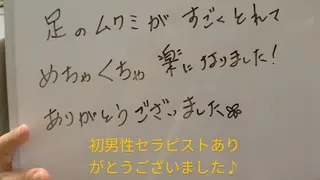 足のムクミがすごくとれて
めちゃくちゃ楽になりました!
ありがとうございました
初男性セラピストあり
がとうございました♪